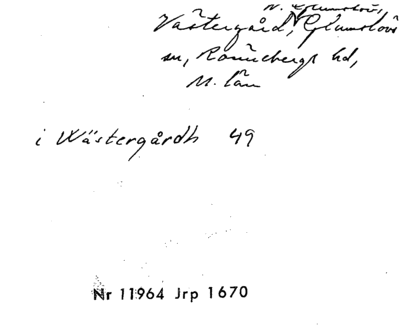 N. Glumslöv,
Västergård, Glumslövs
sn, Rönnebergs hd,
M. län
i Wästergårdh 49
Nr 11964 Jrp 1670